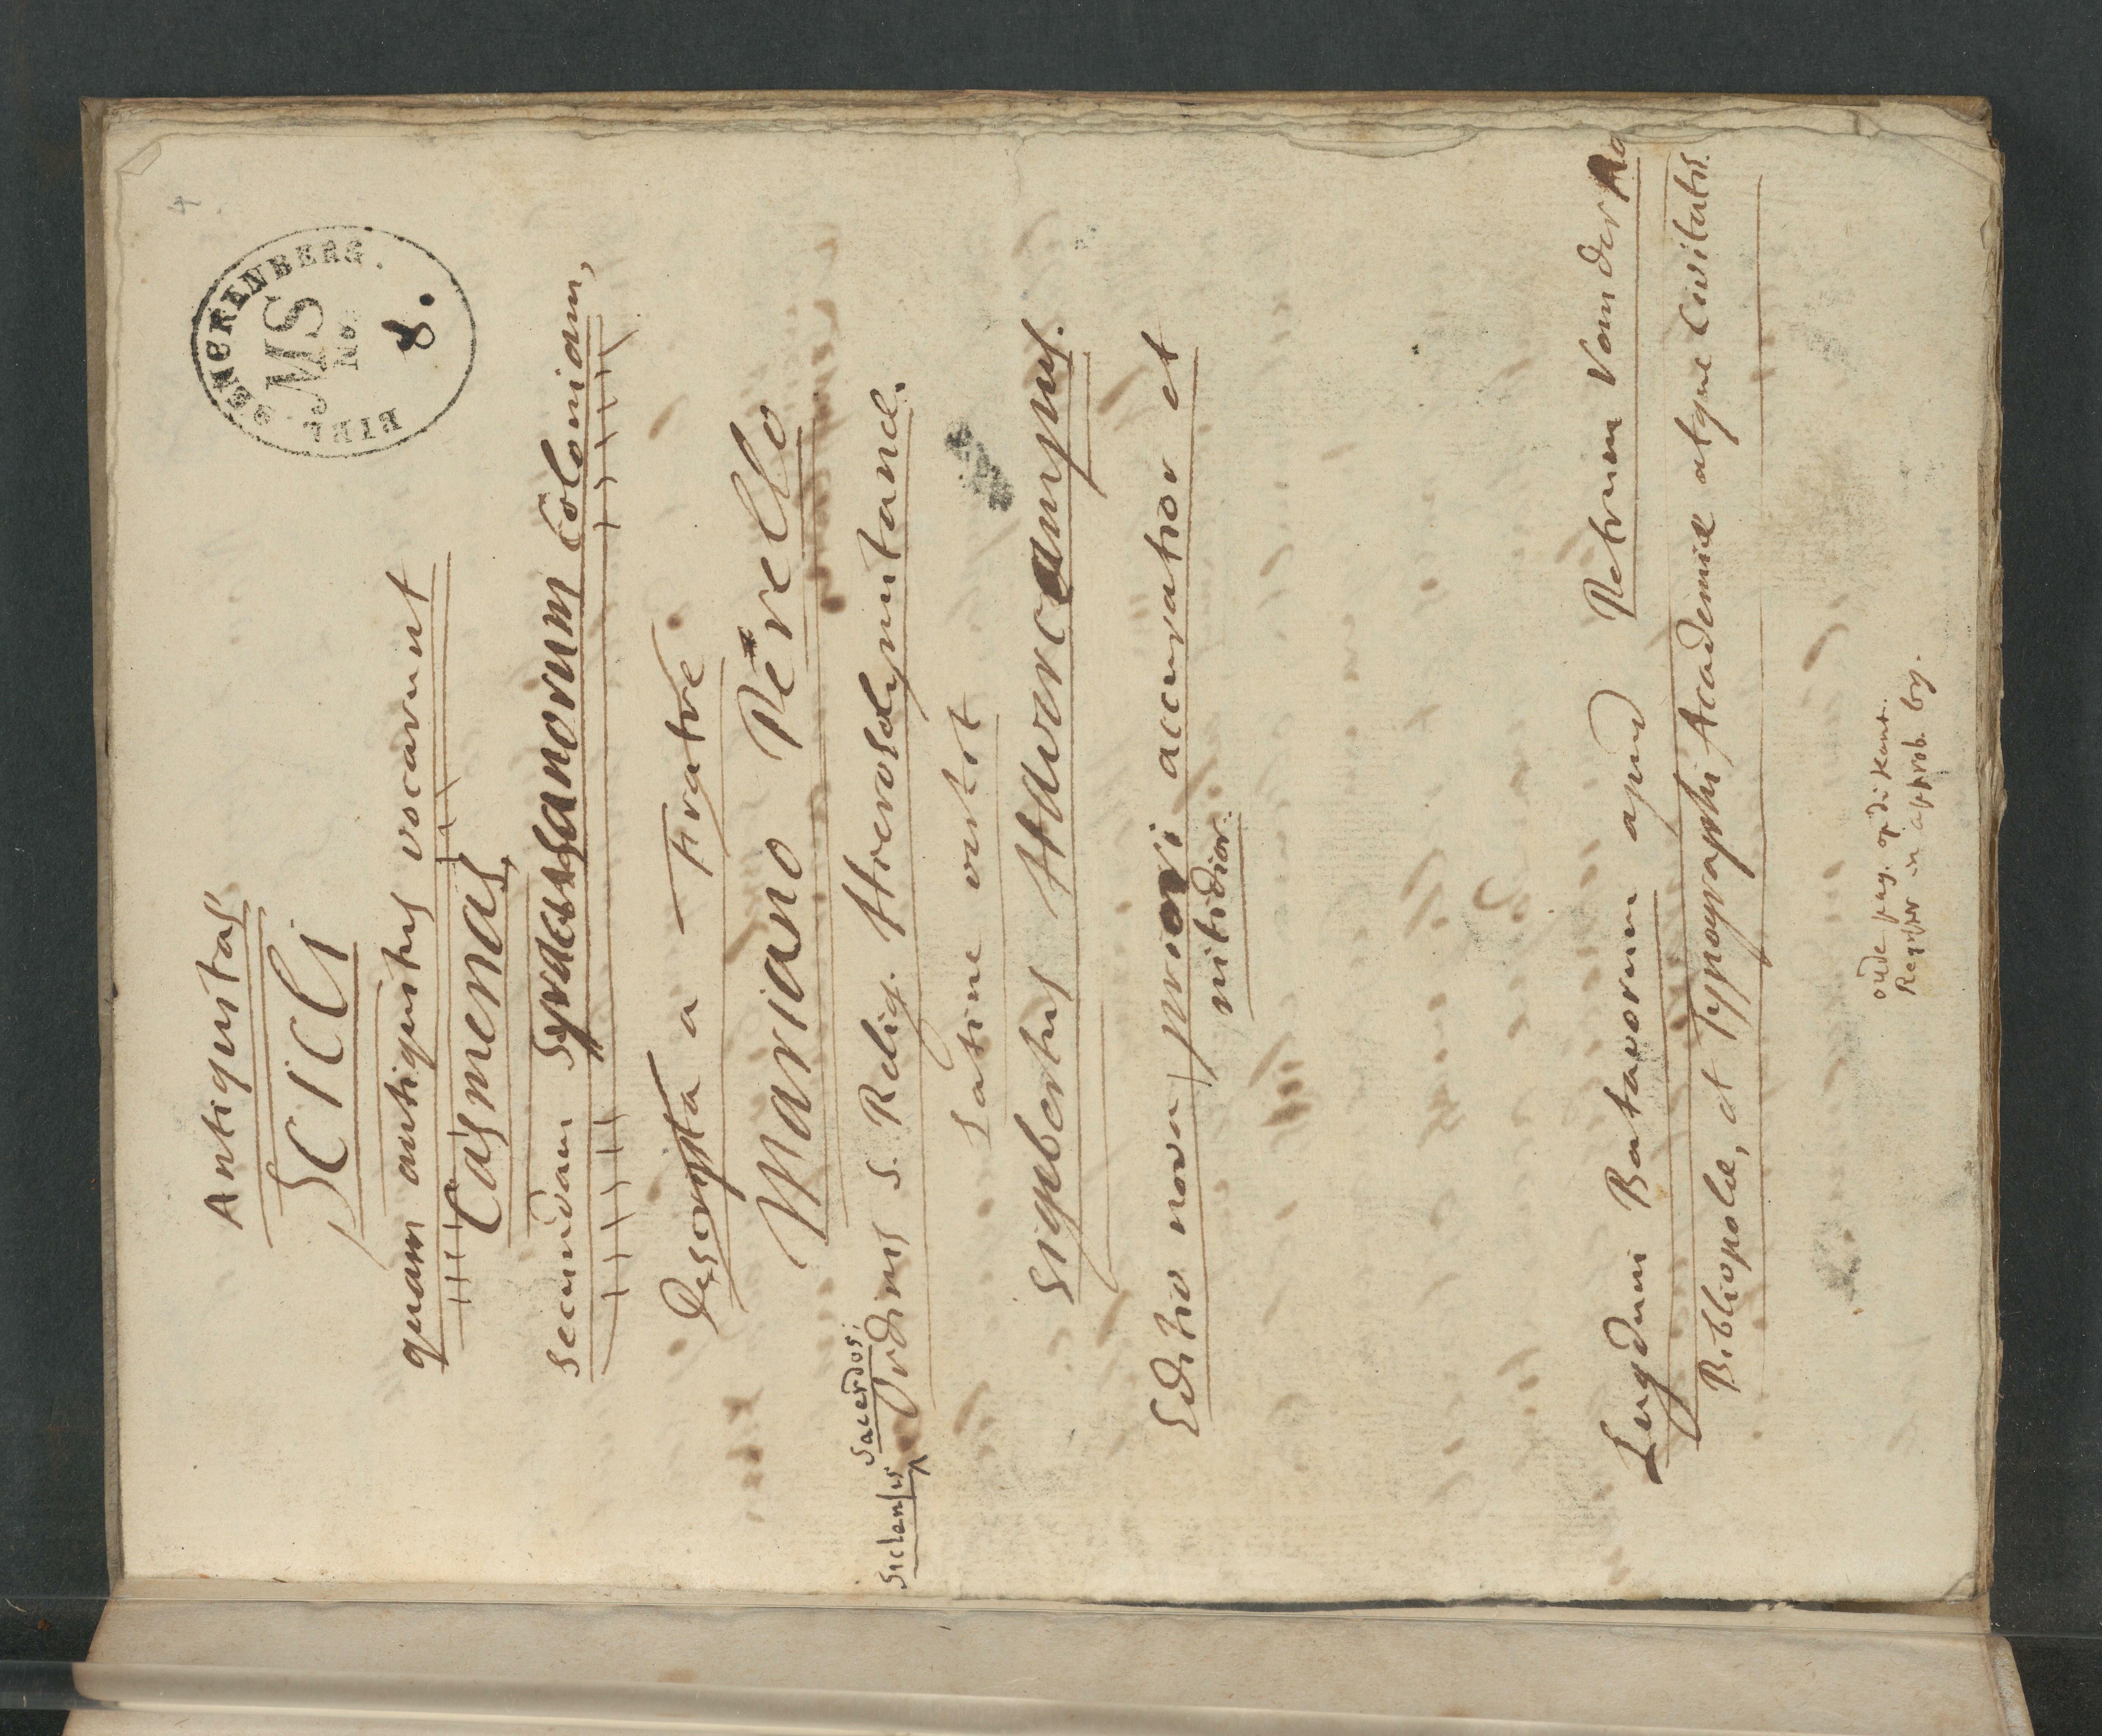 4
BIBL. SEMERENBERG.
MS
No.
8.
Antiquitas
SCICLI
quam antiquitus vocarunt
Casmenas,
secundam Syracusanorum Coloniam,
Descripta a Fratre
Mariano Perello
Siclensis Sacerdos.
Ordinis S. Relig. Hierosolymitanæ.
Latine vertit
Sigebertus Havercampus.
Editio nova priori accuratior et
nitidior.
Lugduni Batavorum apud Petrum Vander Aa
Bibliopolæ, et Typographi Academiæ atque Civitatis.
oude pag. op di kant.
Register in approb. by.